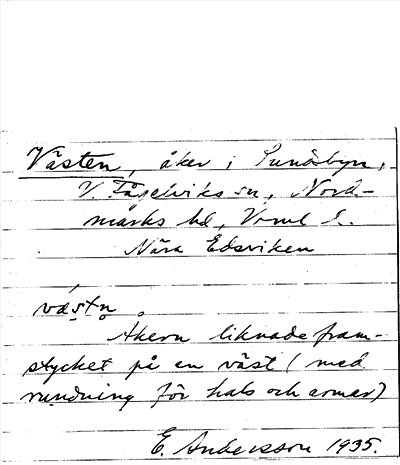 Västen, åker i Sunnsbyn,
V. Fågelviks sn, Nord-
marks hd, Vrml l.
Nära Edsviken
væstn
Åkern liknade fram-
stycket på en väst (med
rundning för hals och armar)
E. Andersson 1935.